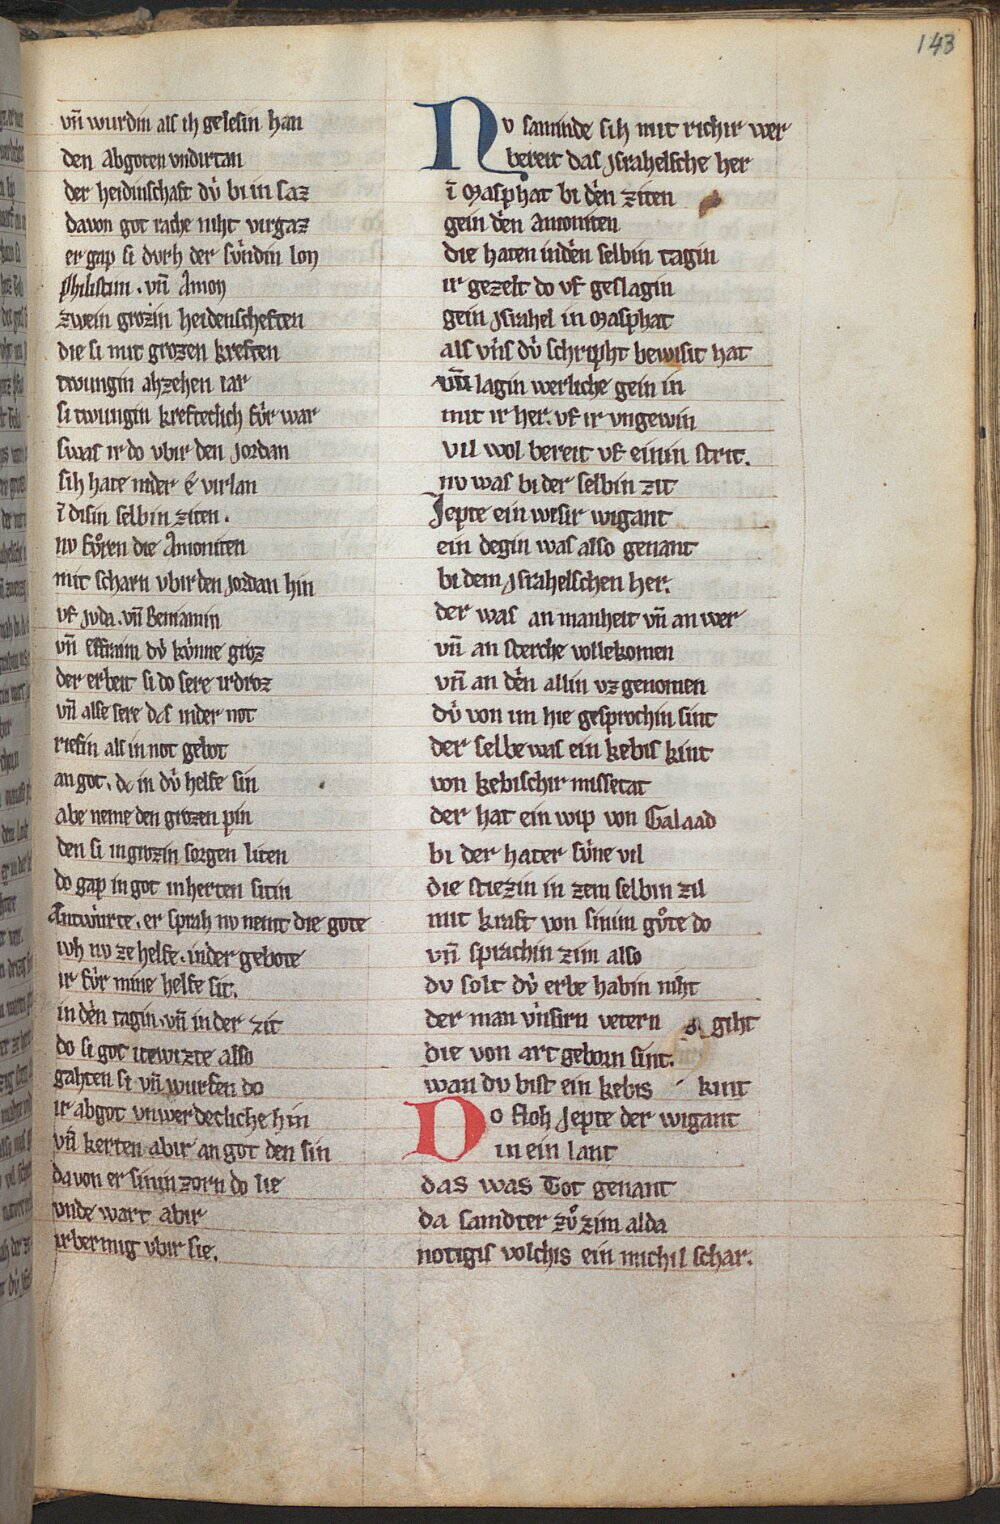 143
vn̄ wurdin als ih gelesin han
den Abgoten vndirtan
der heidinschaft dv̓ bi in saz
davon got rache niht virgaz
er gap si dvrh der sv̓ndin lon
philistiim . vn̄ Amon
zwein grozin heidenscheften
die si mit grozen kreften
twungin ahzehen iar
si twungin krefteclich fv̓r war
swas ir do vbir den Jordan
sih hate nider e virlan
ī disin selbin ziten .
nv fv̊ren die Amoniten
mit scharn vbir den Jordan hin
vf Juda . vn̄ Beniamin
vn̄ effraim dv̓ kv̓nne groz
der erbeit si do sere irdroz
vn̄ alse sere das inder not
riefin als in not gebot
an got . dc in dv̓ helfe sin
abe neme den grozen pin
den si in grozin sorgen liten
do gap in got in herten sitin
Antwurte . er sprah nv nemt die gote
wh nv ze helfe . in der gebote
ir fv̓r mine helfe sit .
in den tagin . vn̄ in der zit
do si got itewizte also
gahten si vn̄ wurfen do
ir abgot vnwerdecliche hin
vn̄ kerten abir an got den sin
davon er sinin zorn do lie
vnde wart abir
irbermig vbir sie .
Nv saminde sih mit richir wer
bereit das Jsrahelsche her
ī Masphat bi den ziten
gein den Amoniten
die haten inden selbin tagin
ir gezelt do vf geslagin
gein Jsrahel in Masphat
als vns dv̓ schripht bewisit hat
vn̄ lagin werliche gein in
mit ir her . vf ir vngewin
vil wol bereit vf einin strit .
nv was bi der selbin zit
Jepte ein wisir wigant
ein degin was also genant
bi dem Jsrahelschen her .
der was an manheit vn̄ an wer
vn̄ an sterche vollekomen
vn̄ an den allin vz genomen
dv̓ von im hie gesprochin sint
der selbe was ein kebis kint
von kebischir missetat
der hat ein wip von Galaad
bi der hater sv̓ne vil
die stiezin in zem selbin zil
mit kraft von sinim gv̊te do
vn̄ sprachin zim also
dv solt dv̓ erbe habin niht
der man vnsirn vetern giht
die von art geborn sint .
wan dv bist ein kebis kint
Do floh Jepte der wigant
in ein lant
das was Tot genant
da samdter zv̊ zim alda
notigis volchis ein michil schar .